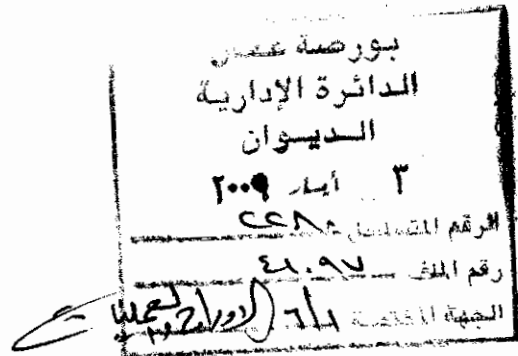 بورصة عمان
الدائرة الإدارية
الديوان
٣ أيار ٢٠٠٩
الرقم المتسلسل ٢٢٨٠
رقم الملف ٤١٠٩٧
الجهة المختصة